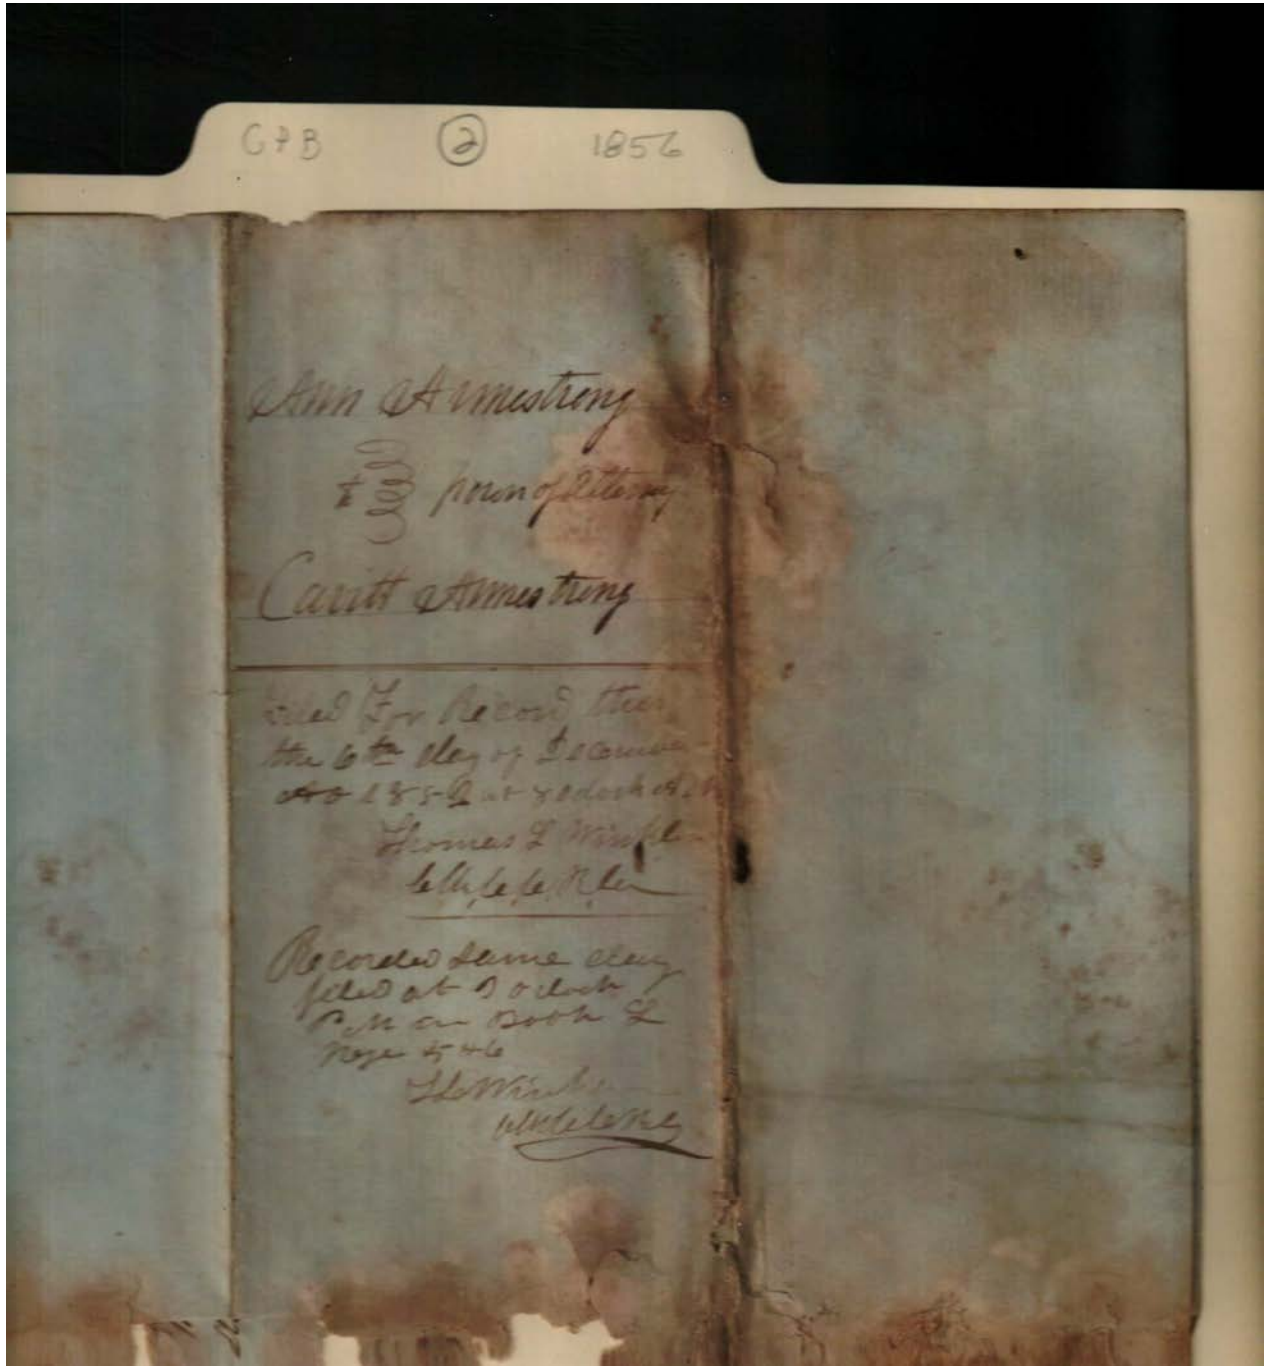 C & B 2 1856
Ann Armstrong
to power of Attorney
Cavitt Armstrong
Filed For Record this
the 6th day of December
AD 185 at 8 oclock A.M
Thomas L Winkler
Recorded Same day
filed at 3 oclock
P.M in Book L
Page 546